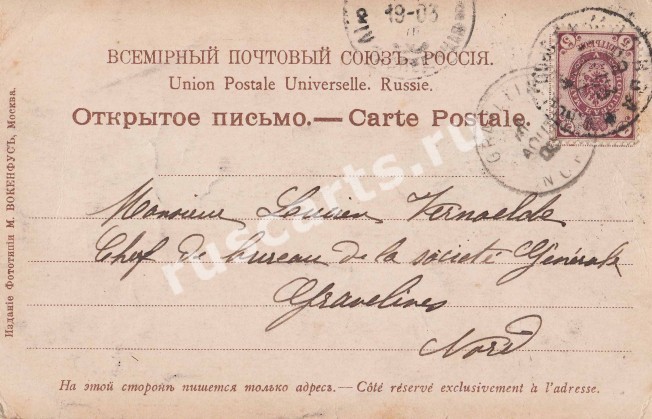 19-03
ВСЕМІРНЫЙ ПОЧТОВЫЙ СОЮЗЪ, РОССІЯ.
Union Postale Universelle. Russie.
Открытое письмо.— Carte Postale.
Monsieur Lucien Vernaelde
Chef de bureau de la société Générale
Gravelines
Nord
На этой сторонѣ пишется только адресъ.— Côté réservé exclusivement à l'adresse.
Изданіе Фототипіи М. ВОКЕНФУСЪ, Москва.
ruscarts.ru